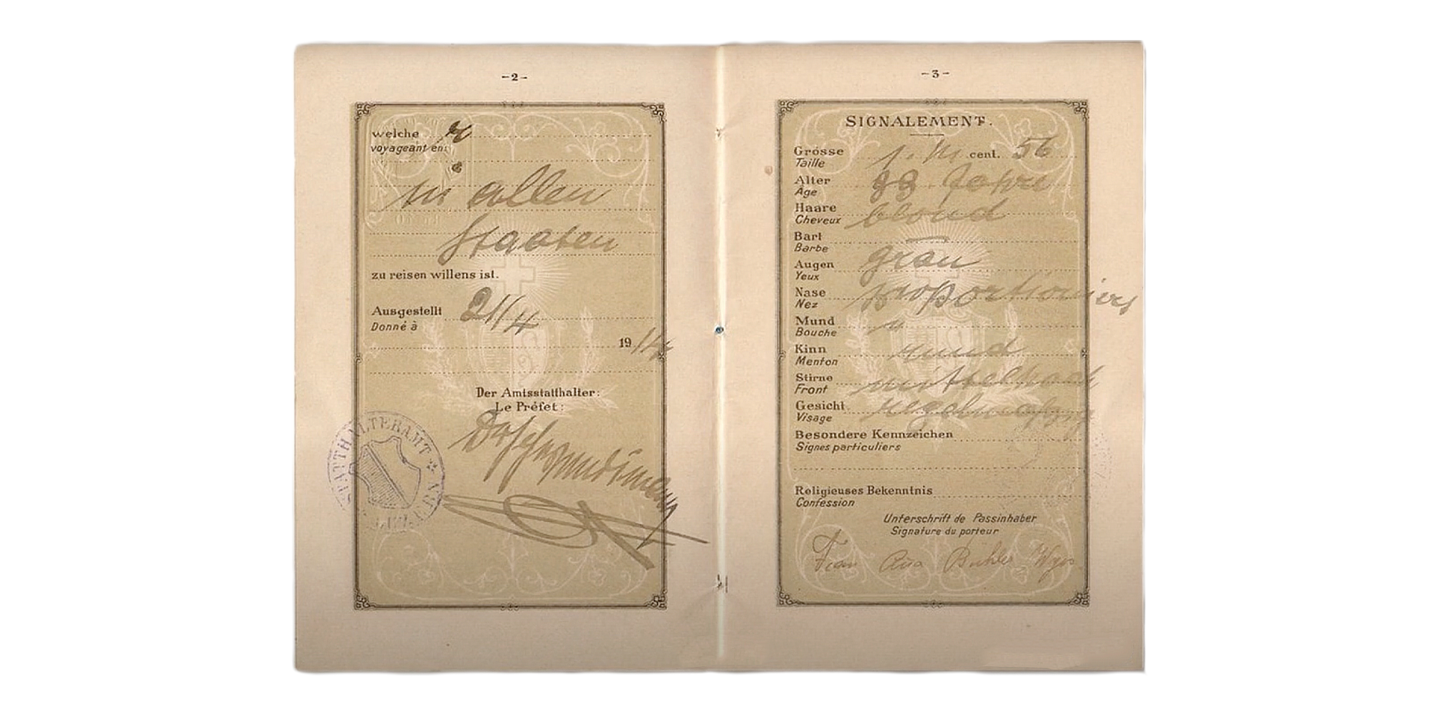 -2-
welche
voyageant en:
in allen
Staaten
zu reisen willens ist.
Ausgestellt 21/4
Donné à
19
Der Amtsstatthalter:
Le Préfet:
STATTHALTERAMT
-3-
SIGNALEMENT.
Grösse 1. M. cent. 56
Taille
Alter Jahre
Age
Haare blond
Cheveux
Bart —
Barbe
Augen grau
Yeux
Nase proportioniert
Nez
Mund "
Bouche
Kinn rund
Menton
Stirne mittelhoch
Front
Gesicht regelmässig
Visage
Besondere Kennzeichen
Signes particuliers
Religiöses Bekenntnis
Confession
Unterschrift de Passinhaber
Signature du porteur
Frau